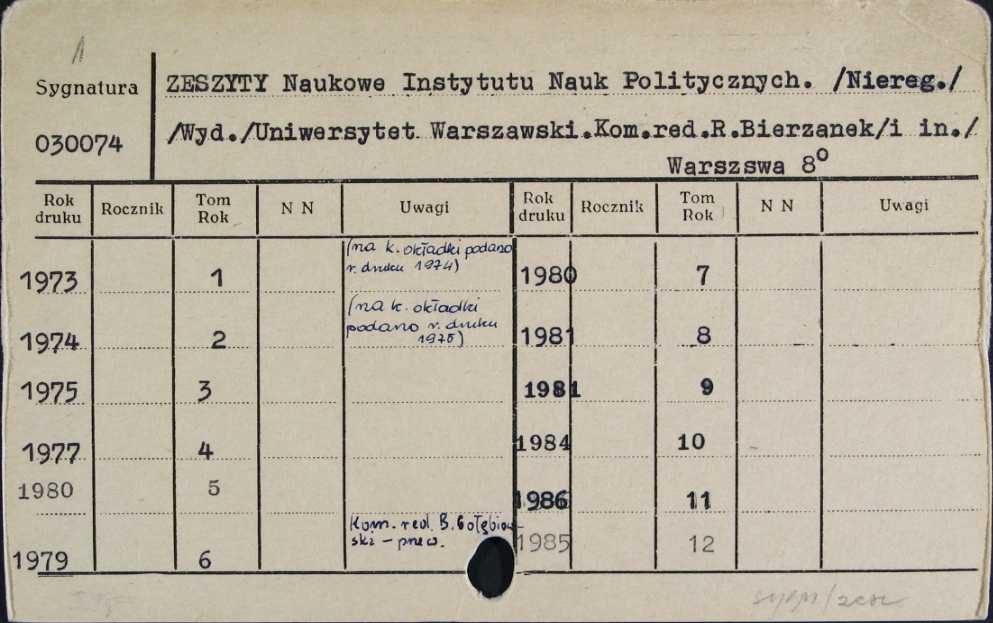 1
Sygnatura
030074
ZESZYTY Naukowe Instytutu Nauk Politycznych. /Niereg./
/Wyd./Uniwersytet Warszawski.Kom.red.R.Bierzanek/i in./
Warszswa 8º
Rok druku Rocznik Tom Rok N N Uwagi Rok druku Rocznik Tom Rok N N Uwagi
1973 1 (na k. okładki podano r. druku 1974) 1980 7
1974 2 (na k. okładki podano r. druku 1975) 1981 8
1975 3 1981 9
1977 4 1984 10
1980 5 1986 11
1979 6 Kom. red. B. Gołębiow-ski - przew. 1985 12